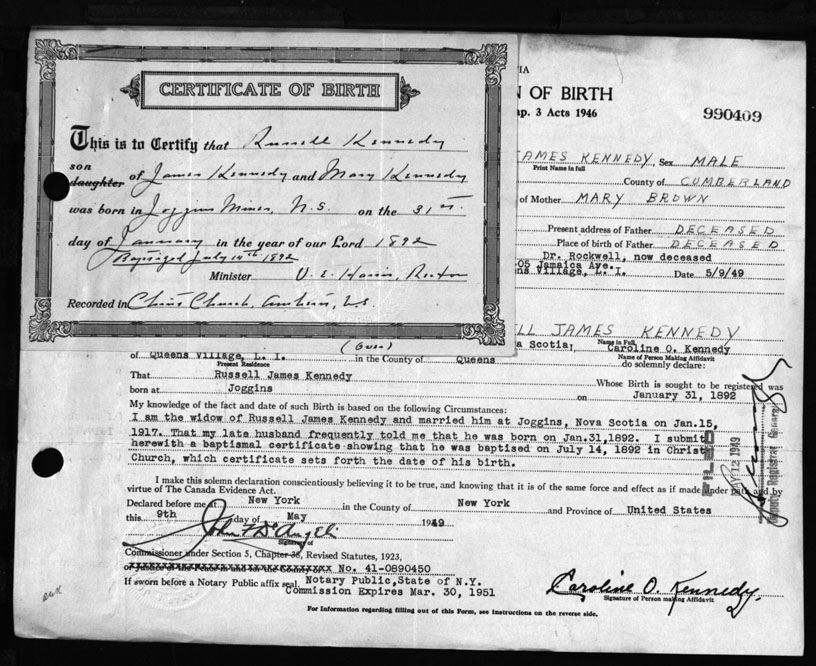 CERTIFICATE OF BIRTH
This is to Certify that Russell Kennedy
son
daughter of James Kennedy and Mary Kennedy
was born in Joggins Mines, N.S. on the 31st
day of January in the year of our Lord 1892
Baptized July 14th 1892
Minister V. E. Harris, Rector
Recorded in Christ Church, Amherst, N.S.
(Over)
IA
N OF BIRTH
ap. 3 Acts 1946
990409
JAMES KENNEDY, Sex MALE
Print Name in full
County of CUMBERLAND
of Mother MARY BROWN
Present address of Father DECEASED
Place of birth of Father DECEASED
Dr. Rockwell, now deceased
-05 Jamaica Ave.
ns Village, L. I. Date 5/9/49
ELL JAMES KENNEDY
Name in Full
va Scotia, Caroline O. Kennedy
Name of Person Making Affidavit
of Queens Village, L. I. in the County of Queens do solemnly declare:
Present Residence
That Russell James Kennedy Whose Birth is sought to be registered was
born at Joggins on January 31, 1892
My knowledge of the fact and date of such Birth is based on the following Circumstances:
I am the widow of Russell James Kennedy and married him at Joggins, Nova Scotia on Jan.15,
1917. That my late husband frequently told me that he was born on Jan.31,1892. I submit
herewith a baptismal certificate showing that he was baptised on July 14, 1892 in Christ
Church, which certificate sets forth the date of his birth.
I make this solemn declaration conscientiously believing it to be true, and knowing that it is of the same force and effect as if made under oath and by
virtue of The Canada Evidence Act.
Declared before me New York in the County of New York and Province of United States
this 9th day of May 1949
John F D'Angeli
Signature of
Commissioner under Section 5, Chapter 38, Revised Statutes, 1923,
No. 41-0890450
If sworn before a Notary Public affix seal. Notary Public, State of N.Y.
Commission Expires Mar. 30, 1951
Caroline O. Kennedy.
Signature of Person making Affidavit
For Information regarding filling out of this Form, see Instructions on the reverse side.
FILED
MAY 12 1949
Deputy Registrar General